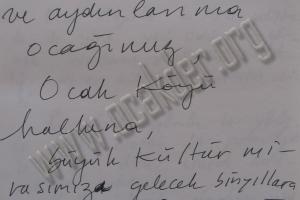 ve aydınlanma
ocağımız,
Ocak Köyü
halkına,
büyük kültür mi-
rasımızı gelecek binyıllara
www.ocakder.org